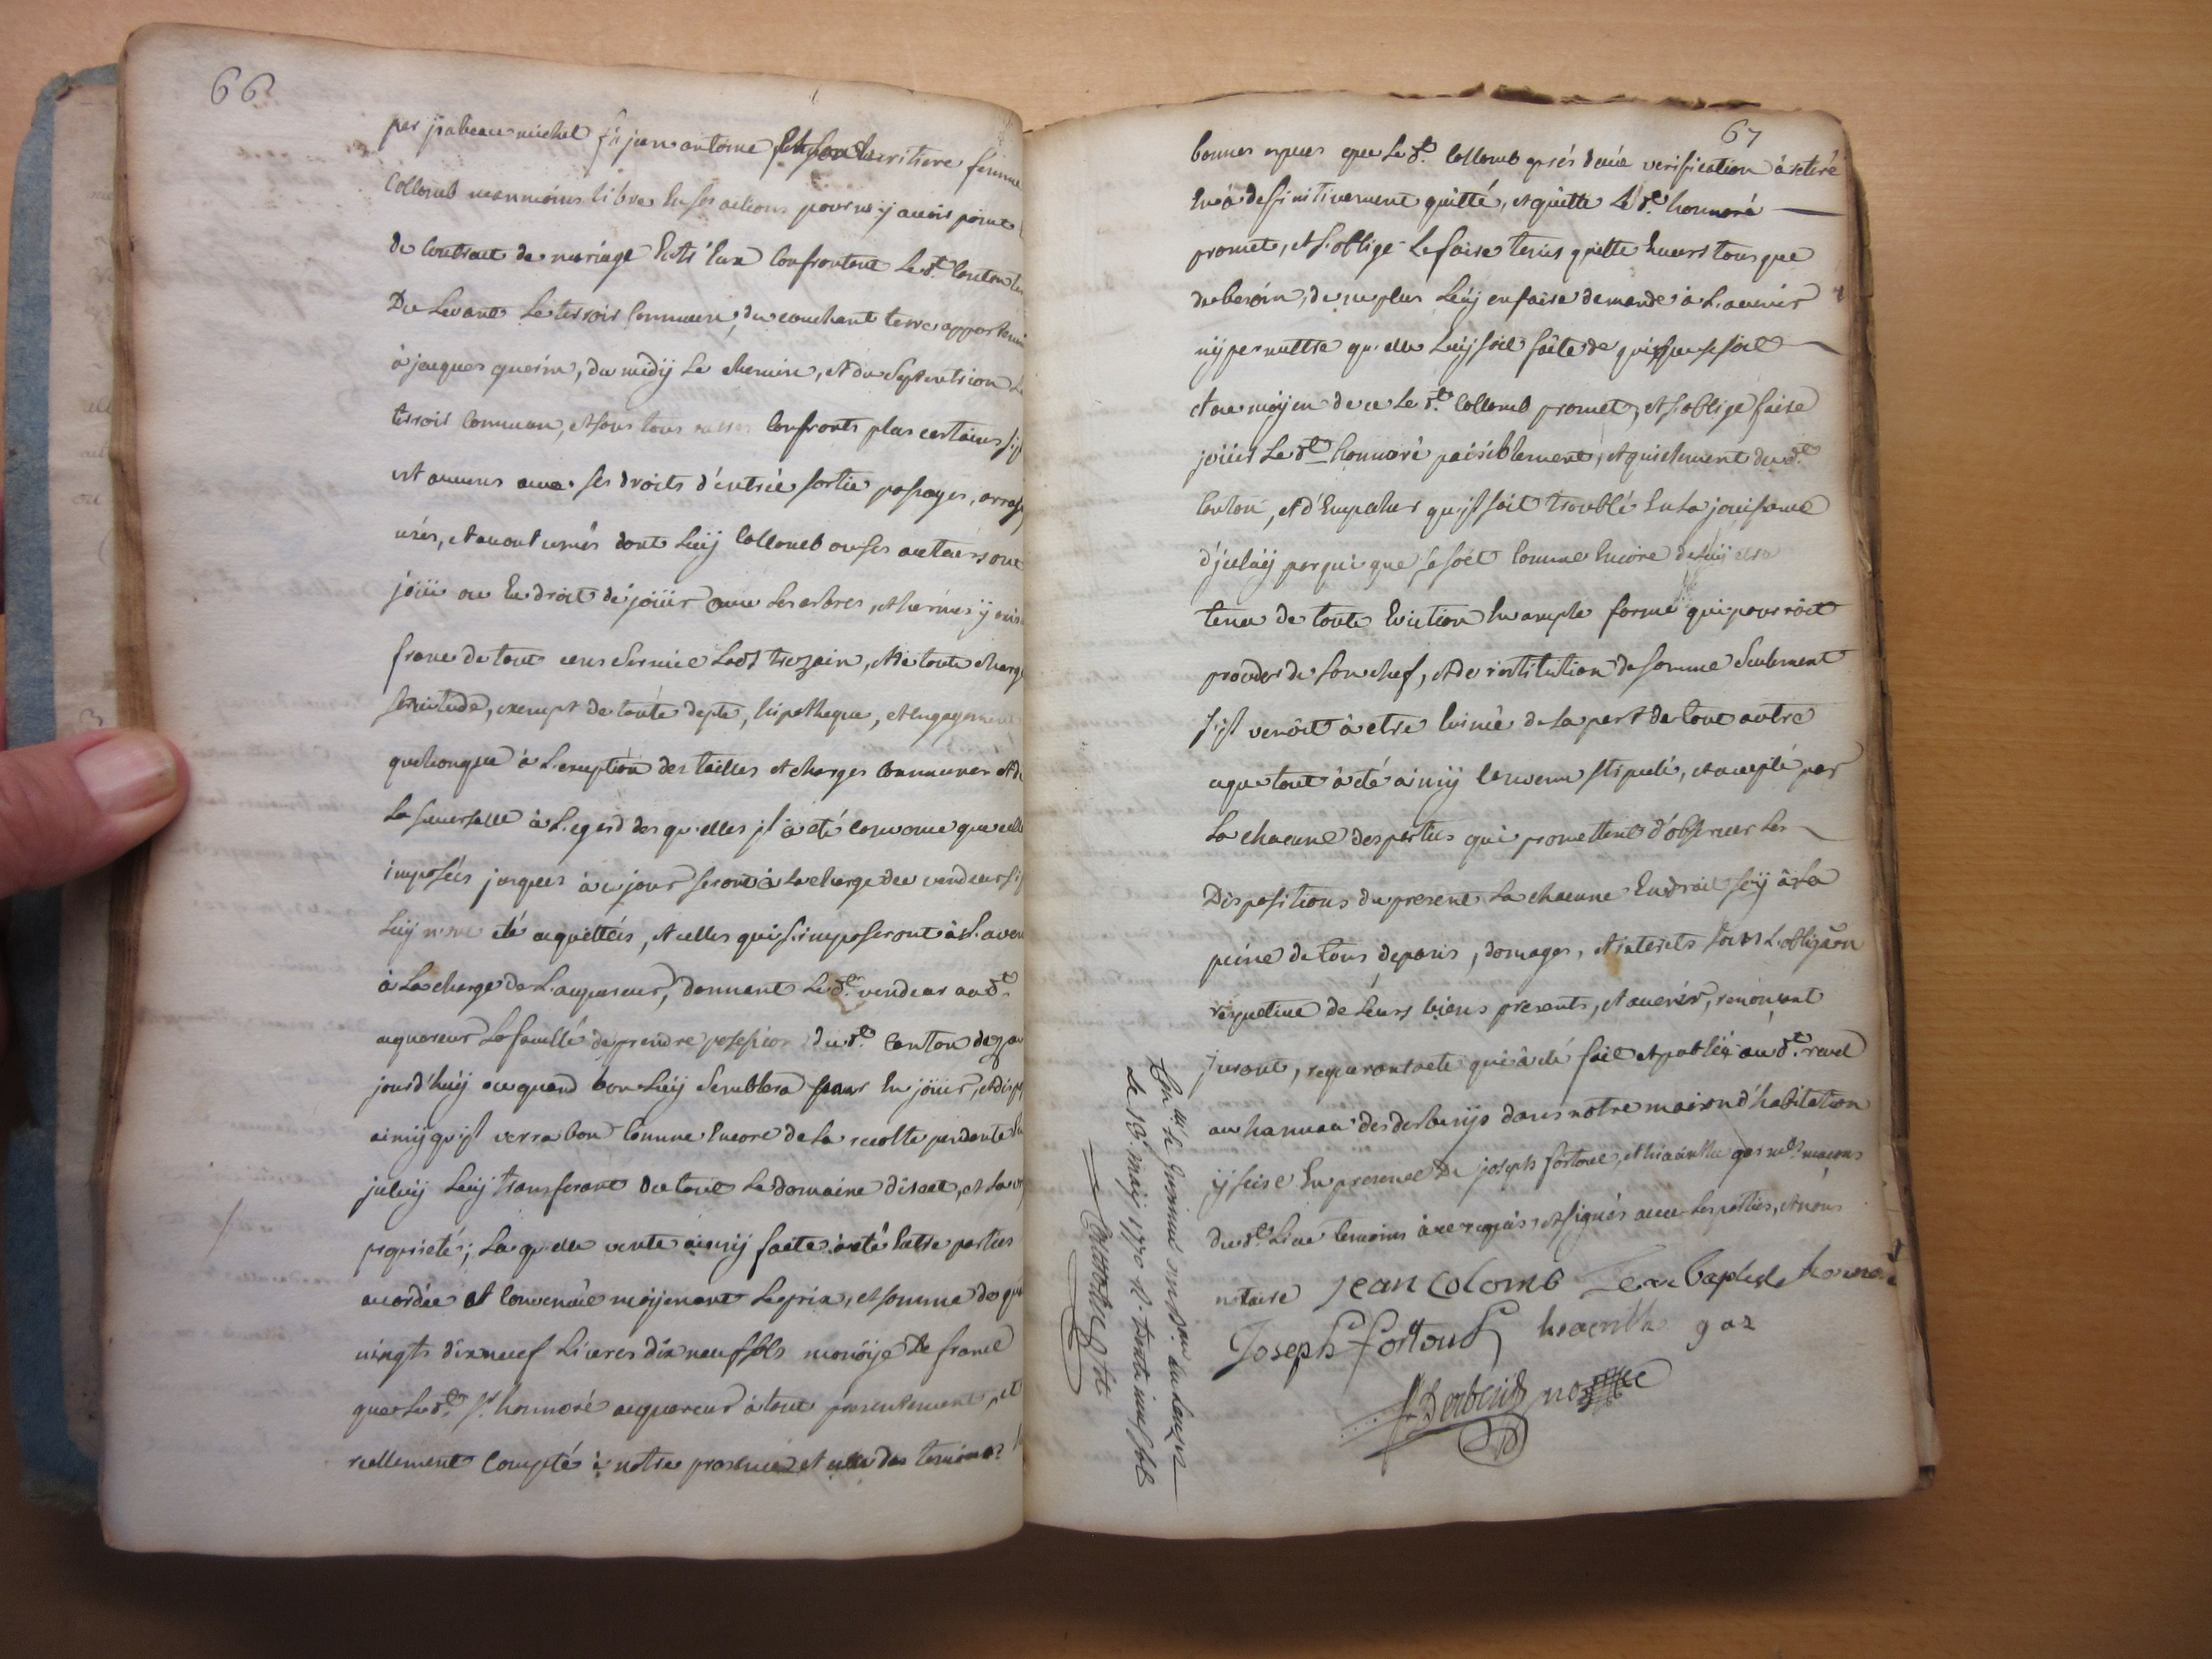 66
par jsabeau michel fe jean antoine et son heritiere femme
Collomb neanmoins libre En ses actions pour ny avoir point
de Contract de mariage Entr'Eux Confrontent Le dt Canton
Du Levant Le terroir Commun, du couchant terre appartenan
à jacques guerin, du midij Le chemin, et du Septentrion Le
terroir Commun, et sous tous autres Confronts plus certains s'jl
est aucuns avec ses droits d'entrée sortie passages, arrosa
uzés, et accoutumés dont Luij Collomb ou ses autheurs ont
joüi ou Eu droit de joüir avec Les arbres, et hermes ij
franc de tout cens Service Lods trezain, et de toute charge
Servitude, exempt de toute depte, hipotheque, et Engagement
quelconque à L'exeption des tailles et charges Communes et de
La Universelle à L'egard des quelles jl à eté convenu que celles
imposées jusques à ce jour seront à La charge du vendeur si
Luij n'ont eté acquittées, et celles qui s'imposeront à L'aven
à La charge de L'acquereur, donnant Le dt vendeur au dt
acquereur La faculté de prendre possession du dt Canton dez au
jourd'huij ou quand bon Luij Semblera pour En joüir, et disp
ainsij qu'jl verra bon Comme Encore de La recolte pendante En
jceluij Luij transferant du tout Le domaine direct, et La
proprieté; La quelle vente ainsij faite à eté Entre parties
accordée et Convenüe moijenant Le prix, et somme de qua
vingts dix neuf Livres dix neuf sols monoije de france
que Le dt Sr honnoré acquereur à tout presentement, et
reellement Compté à notre presence, et celle des temoins En
67
bonnes especes que Le dt Collomb après deuë verification à retiré
En à deffinitivement quitté, et quitte Le dt honnoré
promet, et s'oblige Le faire tenir quitte Envers tous que
de besoin, de ne plus Luij en faire demande à L'avenir
nij permettre qu'elle Luij soit faite de qui que se soit
et au moijen de ce Le dt Collomb promet, et s'oblige faire
joüir Le dt honnoré paisiblement, et quietement du dt
Canton, et d'Empecher qu'jl soit troublé En La jouissance
d'jceluij par qui que se soit Comme Encore de Luij etre
tenu de toute Eviction En ample forme qui pourroit
proceder de son chef, et de restitution de somme Seulement
s'jl venoit à etre Evincé de La part de tout autre
ce que tout à eté ainsij Convenu stipulé, et accepté par
La chacune des parties qui promettent d'observer Les
Dispositions du present La chacune En droit soij à La
peine de tous depans, domages, et interets sous L'obligaōn
respective de Leurs biens presents, et avenir, renonçant
jurant, requerant acte qui à eté fait et publié au dt revel
au hameau des derbesijs dans notre maison d'habitation
ij scise En presence de joseph fortoul, et hiacinthe gas mes maçons
du dt Lieu temoins à ce requis, et signés avec Les parties, et nous
notaire Jean Colomb Jean baptiste honnoré
Joseph fortoul hiacinthe gaz
Derbesij notre
Le 19. maij 1770 Rt trente cinq sols